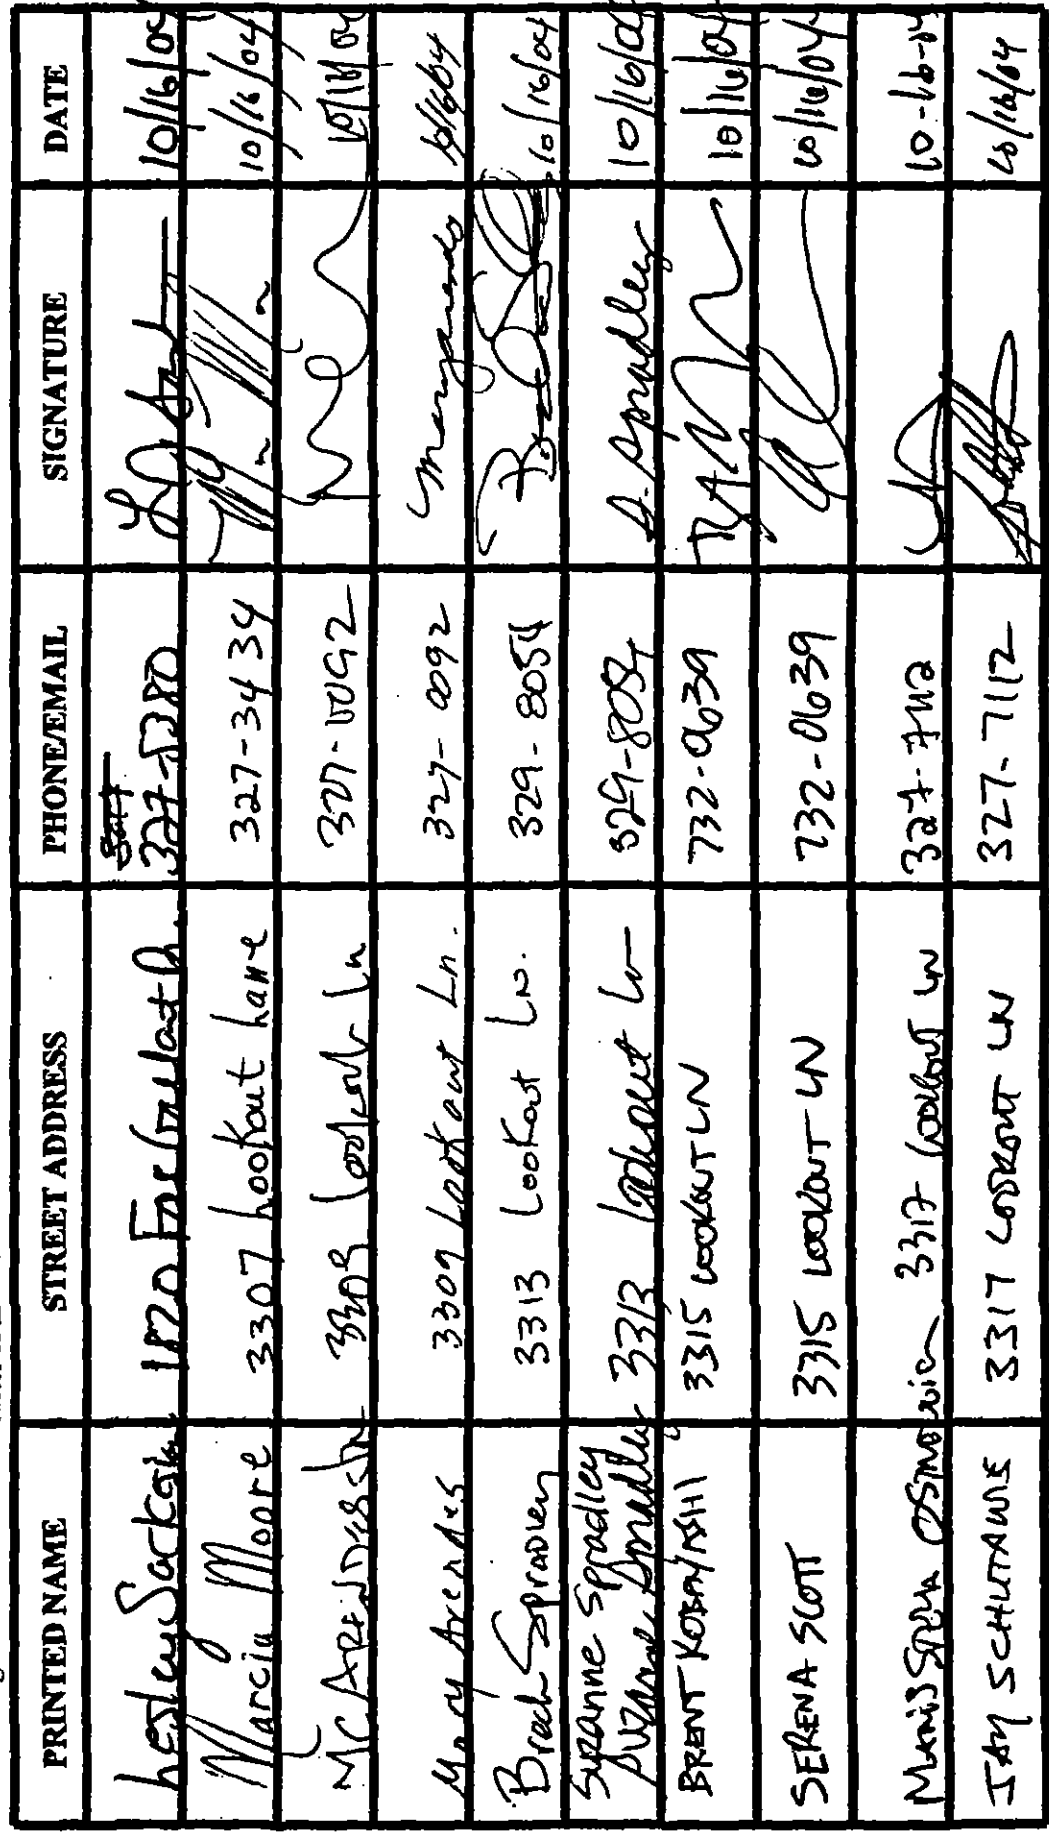 PRINTED NAME STREET ADDRESS PHONE/EMAIL SIGNATURE DATE
Lesley 1820 327-5380 10/16/04
Marcia Moore 3307 Lookout Lane 327-3434 10/16/04
3309 Lookout Ln 327-0092 10/16/04
Mary Arendes 3309 Lookout Ln. 327-0092 10/16/04
Brad Spradley 3313 Lookout Ln. 329-8054 10/16/04
Suzanne Spradley
Suzanne Spradley 3313 Lookout Ln 329-8054 S. Spradley 10/16/04
BRENT KOBAYASHI 3315 LOOKOUT LN 732-0639 10/16/04
SERENA SCOTT 3315 LOOKOUT LN 732-0639 10/16/04
3317 Lookout LN 327-7112 10-16-04
JAY 3317 LOOKOUT LN 327-7112 10/16/04